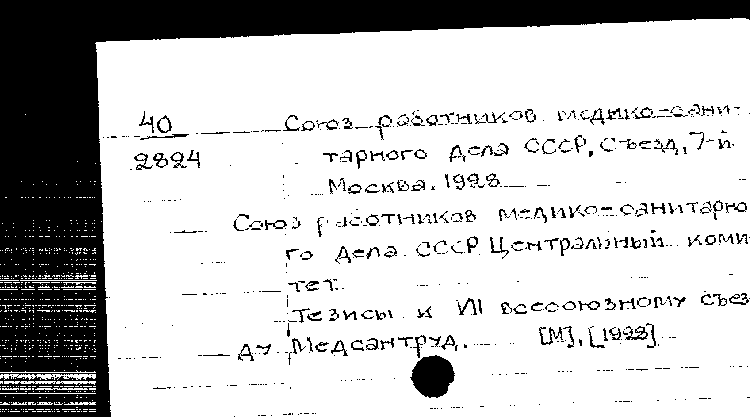 40 Союз работников медико-сани-
2824 тарного дела СССР, Съезд, 7-й
Москва. 1928
Союз работников медико-санитарно
го дела СССР Центральный коми
тет.
Тезисы к VII всесоюзному съез
ду Медсантруд. [М], [1928]